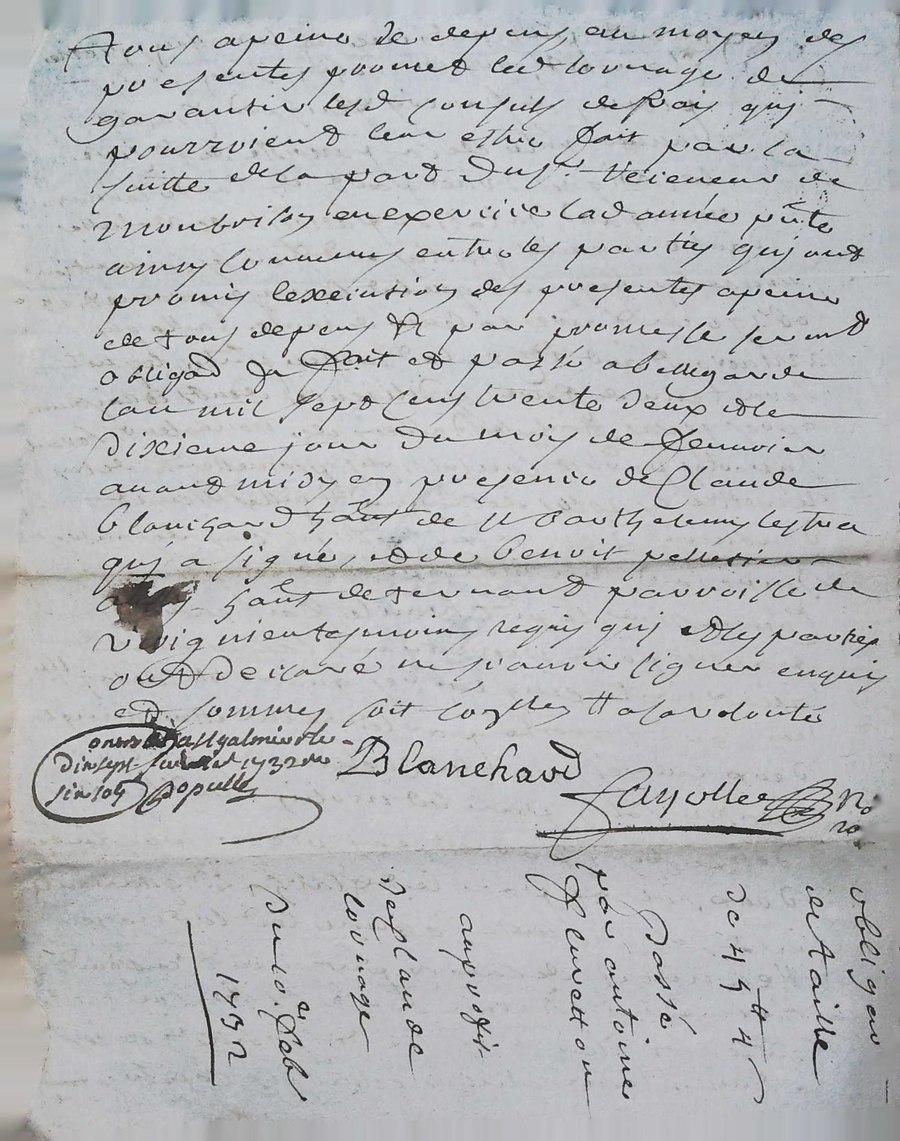 tous a peine de depens au moyen des
presentes promet led Lovnage de
garantir lesd consuls de frais quj
pourroient leur estre fait par la
suitte de la part du Sr. Receveur de
Monbrison en exercice lad année pnte
ainsy convenus entre les parties quj ont
promis l'execution des presentes a peine
de tous depens &c par promesse sermt
obligaon &c fait et passé a bellegarde
l'an mil sept cens trente deux et le
dixieme jour du mois de fevrier
avant midy en presence de Claude
blanchard hant de St Barthelemy lestra
quj a signé, et de benoit pelletier
hant de ternand parroisse de
Virignieu tesmoins requis quj et les parties
ont declaré ne scavoir signer enquis
et sommes soit a sa volonté
a St galmier le
dix sept fevrier 1732 Reçu
six sols Populle
Blanchard
fayolle No
ro
obligaon
de taille
de 45tt 4s
Passé
par antoine
fleurettou
au profit
de Claude
Lovnage
Du 10.e feb
1732